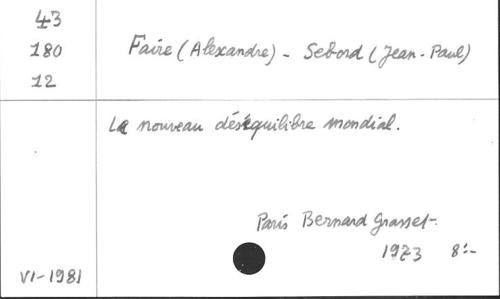 43
180
12
Faire (Alexandre) - Sebord (Jean-Paul)
Le nouveau déséquilibre mondial.
Paris Bernard Grasset.
1973 8:-
VI-1981